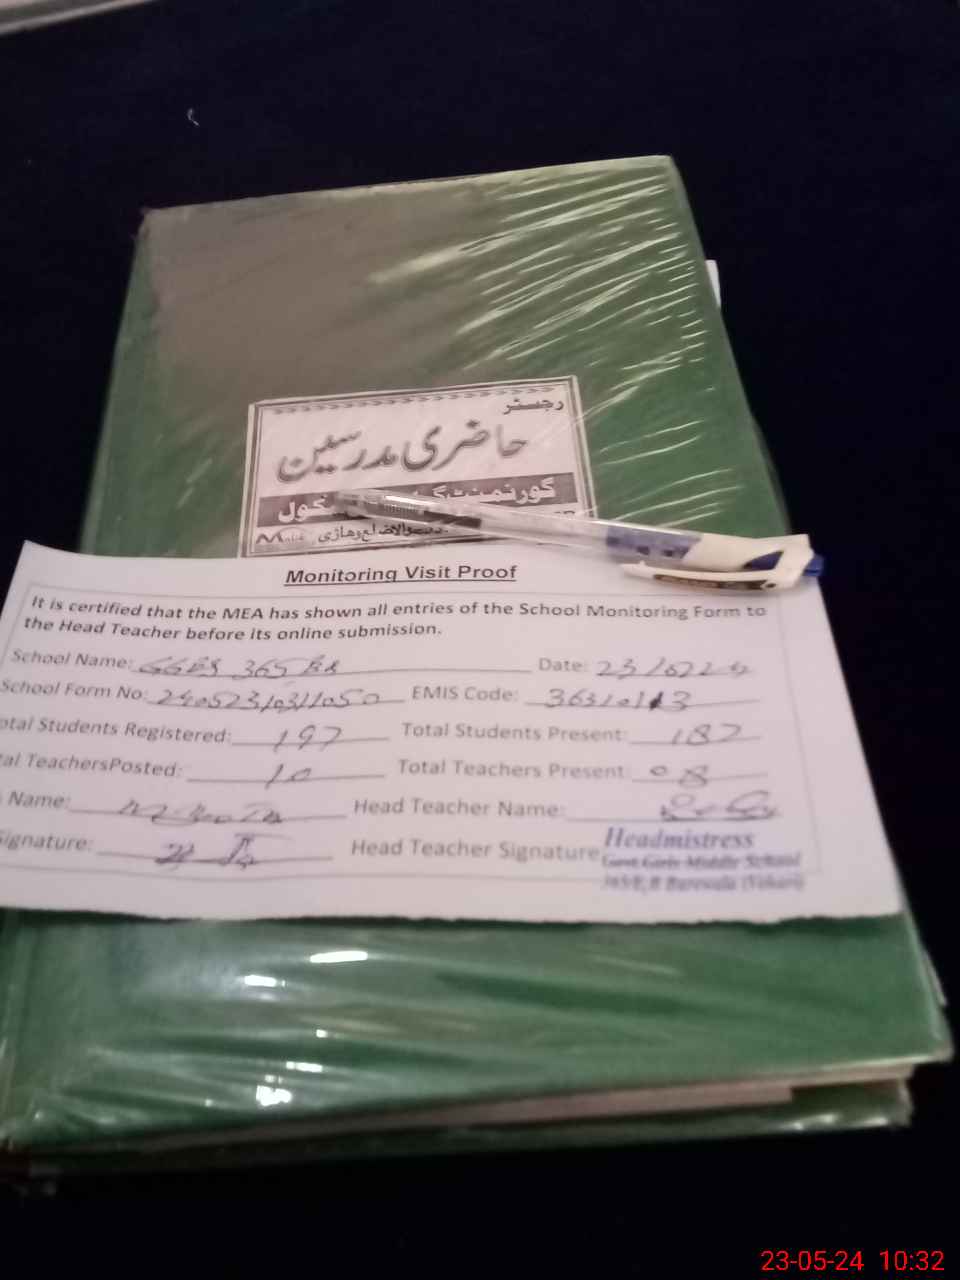 رجسٹر
حاضری مدرسین
گورنمنٹ گرلز سکول
ضلع وھاڑی
Monitoring Visit Proof
It is certified that the MEA has shown all entries of the School Monitoring Form to
the Head Teacher before its online submission.
School Name: 365 EB Date: 23/05/24
School Form No: EMIS Code: 36310113
otal Students Registered: 197 Total Students Present: 187
tal TeachersPosted: 10 Total Teachers Present: 08
Name: Head Teacher Name:
Signature: Head Teacher Signature
Headmistress
Govt Girls Middle School
365/E.B Burewala (Vehari)
23-05-24 10:32